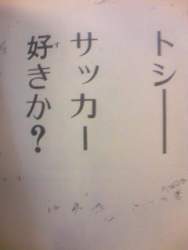 トシ――
サッカー
好きか?